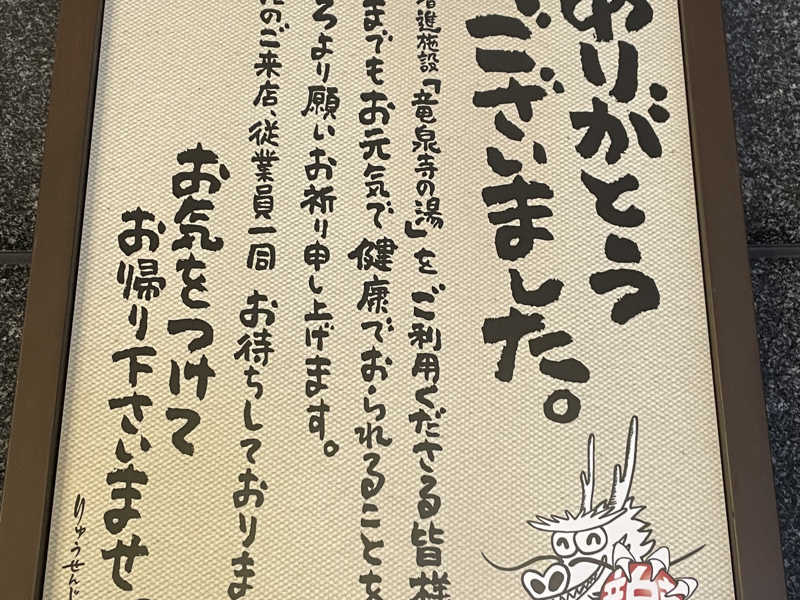 ありがとう
ございました。
進施設「竜泉寺の湯」をご利用くださる皆様
までもお元気で健康でおられることを
ろより願いお祈り申し上げます。
のご来店、従業員一同 お待ちしておりま
お気をつけて
お帰り下さいませ
りゅうせんじ